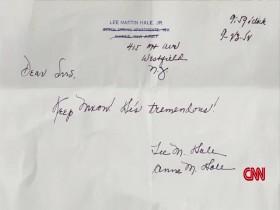 LEE MARTIN HALE JR.
415 Mt Ave
Westfield
NJ
9-23-52
Dear Sirs.
Keep Nixon He's tremendous!
Lee M. Hale
Anne M. Hale
CNN